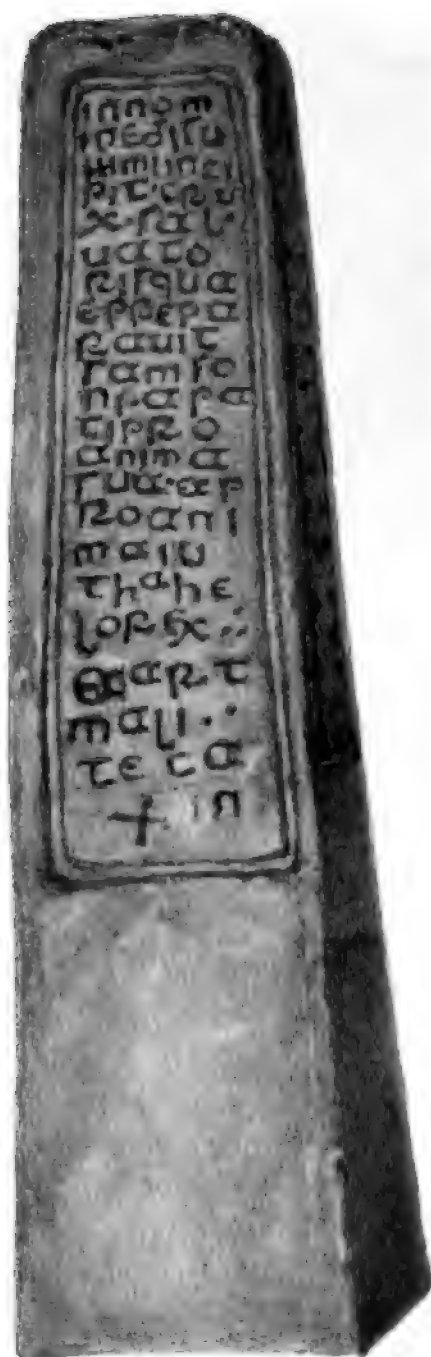 innom
inedisu
mmiinci
pit·cru
x·sal·
uato
risqua
eprepa
rauit
samso
nsapa
tipro
anima
sua·ap
roani
maiu
thahe
lorex:·
art
mali··
teca
+ in